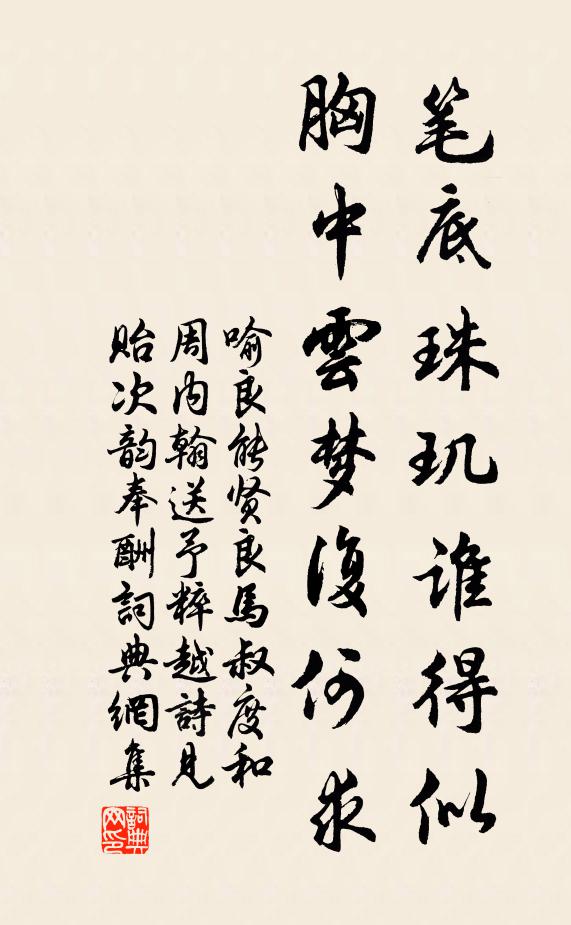 笔底珠玑谁得似
胸中雲梦復何求
喻良能贤良馬叔度和
周内翰送予粹越詩見
贻次韵奉酬詞典網集
詞典网印